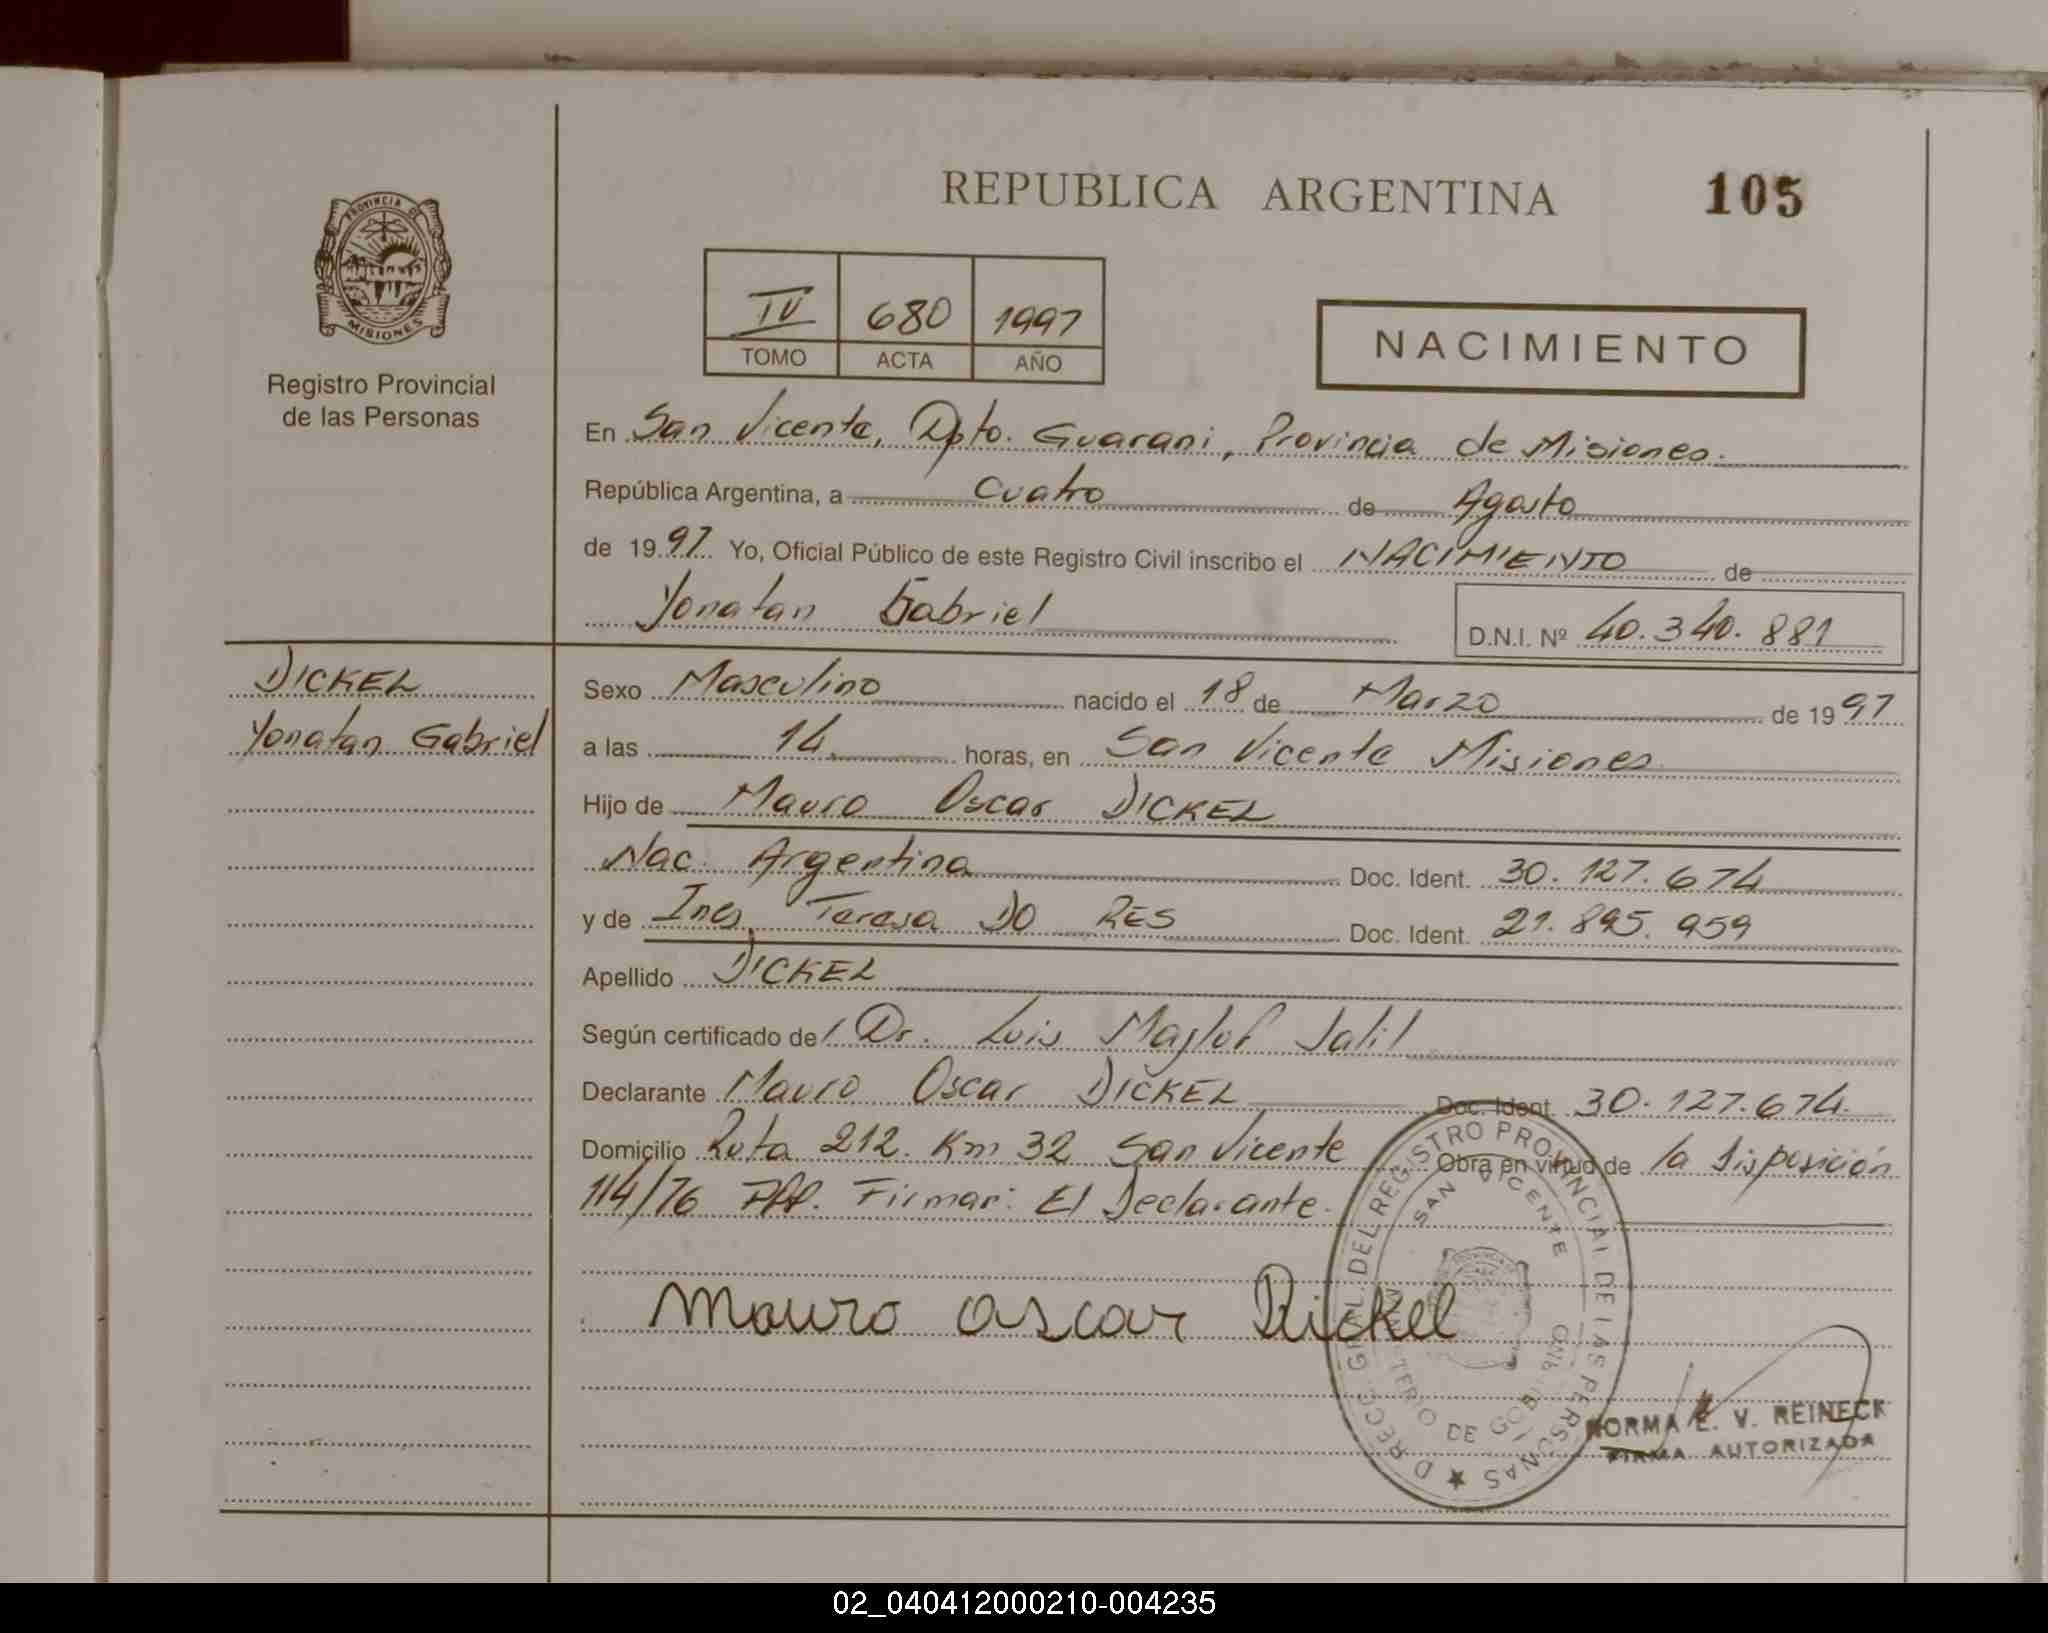 REPUBLICA ARGENTINA
105
PROVINCIA DE
MISIONES
Registro Provincial
de las Personas
IV 680 1997
TOMO ACTA AÑO
NACIMIENTO
En San Vicente, Dpto. Guarani, Provincia de Misiones.
República Argentina, a Cuatro de Agosto
de 1997 Yo, Oficial Público de este Registro Civil inscribo el NACIMIENTO de
Yonatan Gabriel
D.N.I. Nº 40.340.881
DICKEL
Yonatan Gabriel
Sexo Masculino nacido el 18 de Marzo de 1997
a las 14 horas, en San Vicente Misiones
Hijo de Mauro Oscar DICKEL
Nac. Argentina Doc. Ident. 30.127.674
y de Ines Teresa DO RES Doc. Ident. 21.895.959
Apellido DICKEL
Según certificado de Dr. Luis Jalil
Declarante Mauro Oscar DICKEL Doc. Ident. 30.127.674.
Domicilio Ruta 212. Km 32 San Vicente Obra en virtud de la Disposición
114/76 Firman: El Declarante.
Mauro Oscar Dickel
SAN VICENTE
NORMA E. V. REINECK
FIRMA AUTORIZADA
02_040412000210-004235